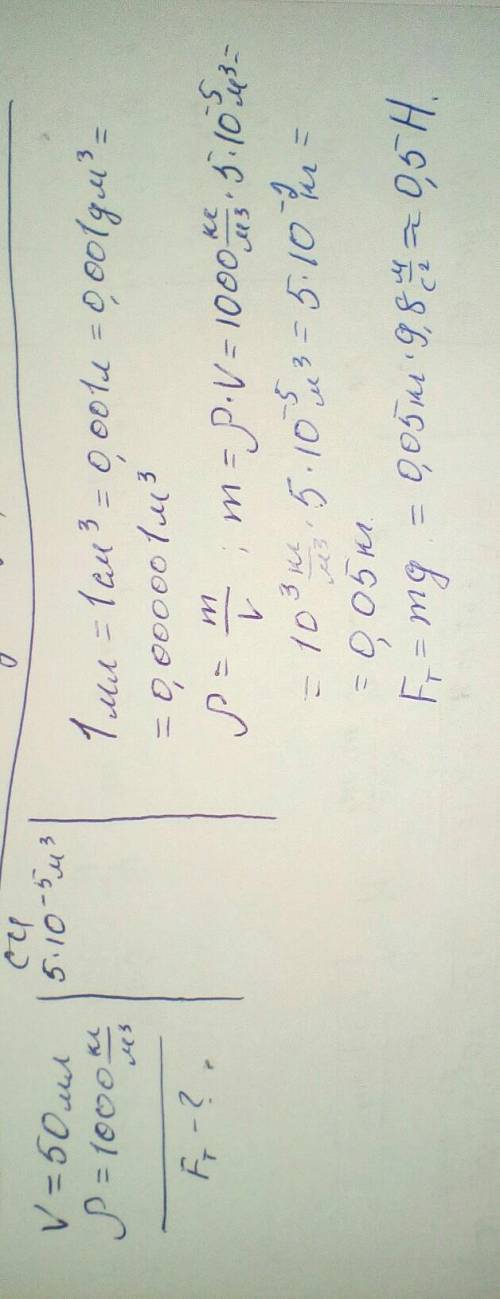 V = 50 мл
ρ = 1000 кг/м³
Fт - ?
СИ
5·10⁻⁵ м³
1 мл = 1 см³ = 0,001 л = 0,001 дм³ =
= 0,000001 м³
ρ = m/V ; m = ρ·V = 1000 кг/м³ · 5·10⁻⁵ м³ =
= 10³ кг/м³ · 5·10⁻⁵ м³ = 5·10⁻² кг =
= 0,05 кг.
Fт = mg = 0,05 кг · 9,8 м/с² ≈ 0,5 Н.